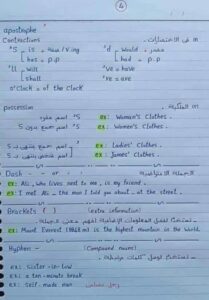 4
apostrophe
Contractions في الاختصارات in
's is + noun / Ving
has + p.p
'd would + مصدر
had + p.p
'll will
shall
've = have
're = are
o'clock = of the clock
possession في الملكية in
's اسم مفرد ex: Woman's Clothes.
's اسم جمع بدون s ex: Women's Clothes.
ex: Ladies' Clothes.
ex: James' Clothes.
Dash - or
ex: Ali _ who lives next to me _ is my friend.
ex: I met Ali _ the man I told you about _ at the street.
Brackets ( ) (extra information)
ex: Mount Everest (8848 m) is the highest mountain in the world.
Hyphen - (Compound nouns)
ex: sister-in-law
ex: a ten-minute break
ex: Self-made man رجل عصامي